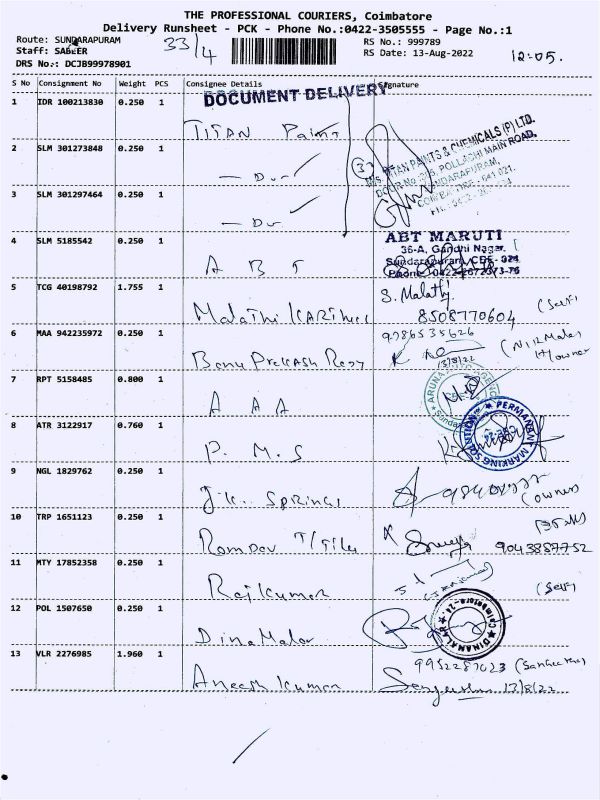 THE PROFESSIONAL COURIERS, Coimbatore
Delivery Runsheet - PCK - Phone No.:0422-3505555 - Page No.:1
Route: SUNDARAPURAM 33/4 RS No.: 999789
Staff: SABEER RS Date: 13-Aug-2022 12:05.
DRS No.: DCJB99978901
S No Consignment No Weight PCS Consignee Details Signature
DOCUMENT DELIVERY
1 IDR 100213830 0.250 1 TITAN Paint
2 SLM 301273848 0.250 1 — Do —
M/s. TITAN PAINTS & CHEMICALS (P) LTD.
POLLACHI MAIN ROAD,
SUNDARAPURAM,
3 SLM 301297464 0.250 1 — Do —
4 SLM 5185542 0.250 1 A B T
ABT MARUTI
36-A, Gandhi Nagar,
Sundarapuram, CBE - 024
Phone : 0422-2672373-76
5 TCG 40198792 1.755 1 Malathi
S. Malathy
8508770604 (Self)
6 MAA 942235972 0.250 1
9786535626
13/8/22
H/owner
7 RPT 5158485 0.800 1 A A A
8 ATR 3122917 0.760 1 P. M. S
PERMANANT MARKING SOLUTION
9 NGL 1829762 0.250 1 J.K. Springs
(owner)
10 TRP 1651123 0.250 1 Ramdev T/Tiles
9043887752
11 MTY 17852358 0.250 1 Rajkumar
(Self)
12 POL 1507650 0.250 1 DinaMalar
DINAMALAR
13 VLR 2276985 1.960 1 Aneesh kumar
9952287023 (Sangeetha)
13/8/22